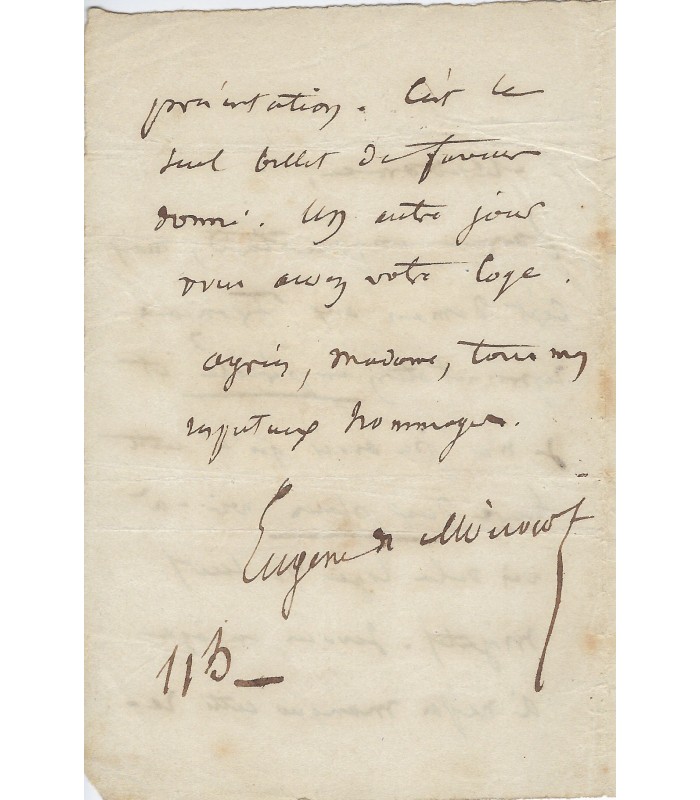 présentation. C'est le
seul billet de faveur
donné. Un autre jour
vous aurez votre loge.
agréez, Madame, tous mes
respectueux hommages.
Eugène de Mirecourt
11 h